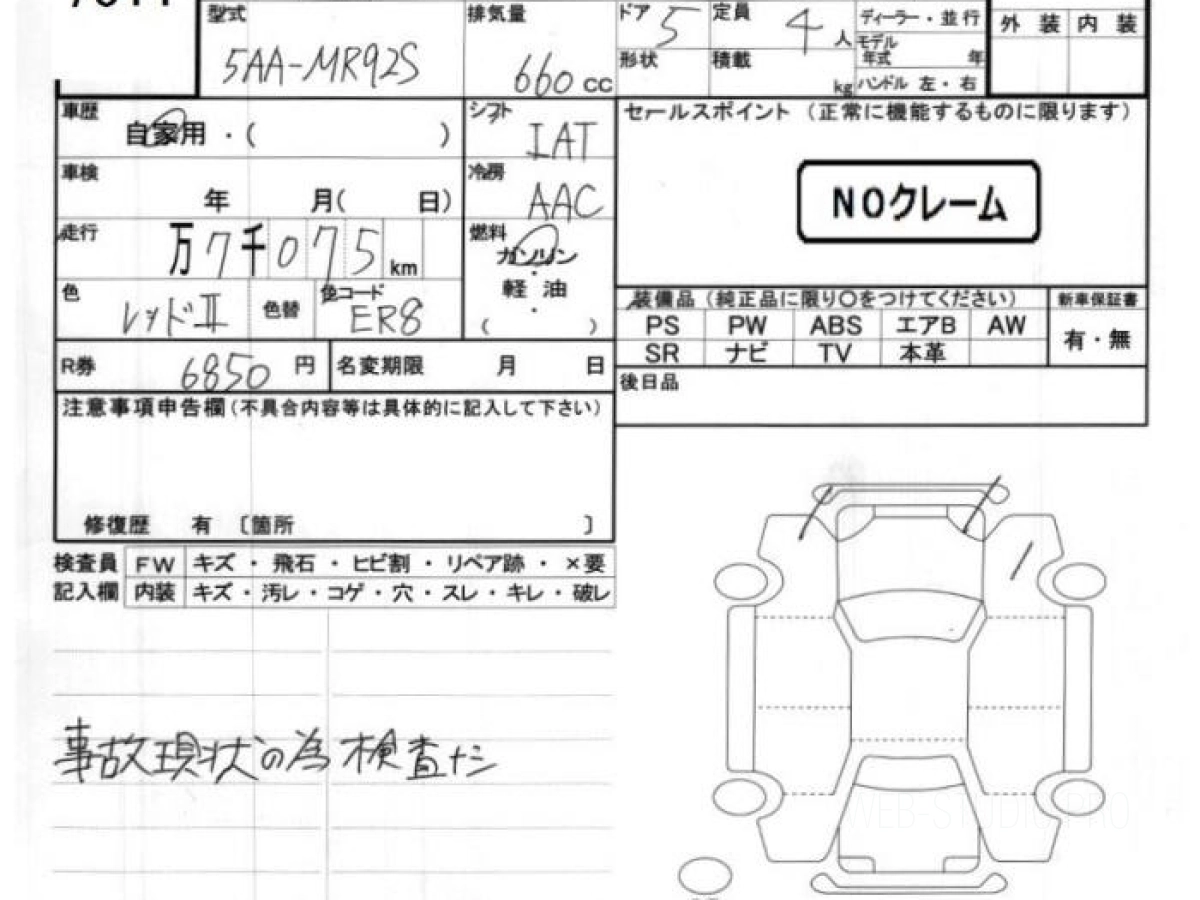 型式 5AA-MR92S
排気量 660 CC
ドア 5 定員 4 人
形状 積載 kg
ディーラー・並行
モデル年式 年
ハンドル 左・右
外装 内装
車歴 自家用・( )
シフト IAT
車検 年 月( 日)
冷房 AAC
走行 万 7 千 0 7 5 km
燃料 ガソリン・軽油・( )
色 レッドII 色替 色コード ER8
R券 6850 円 名変期限 月 日
セールスポイント (正常に機能するものに限ります)
NOクレーム
装備品(純正品に限り○をつけてください) 新車保証書
PS PW ABS エアB AW 有・無
SR ナビ TV 本革
後日品
注意事項申告欄(不具合内容等は具体的に記入して下さい)
修復歴 有 〔箇所 〕
検査員 FW キズ・飛石・ヒビ割・リペア跡・×要
記入欄 内装 キズ・汚レ・コゲ・穴・スレ・キレ・破レ
事故現状の為 検査ナシ
WEB-STUDIO.PRO